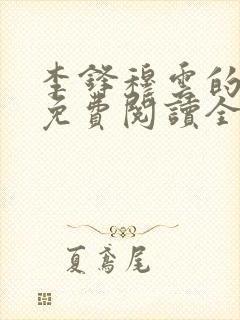 李鋒穆雲的
免費閱讀全
夏鳶尾